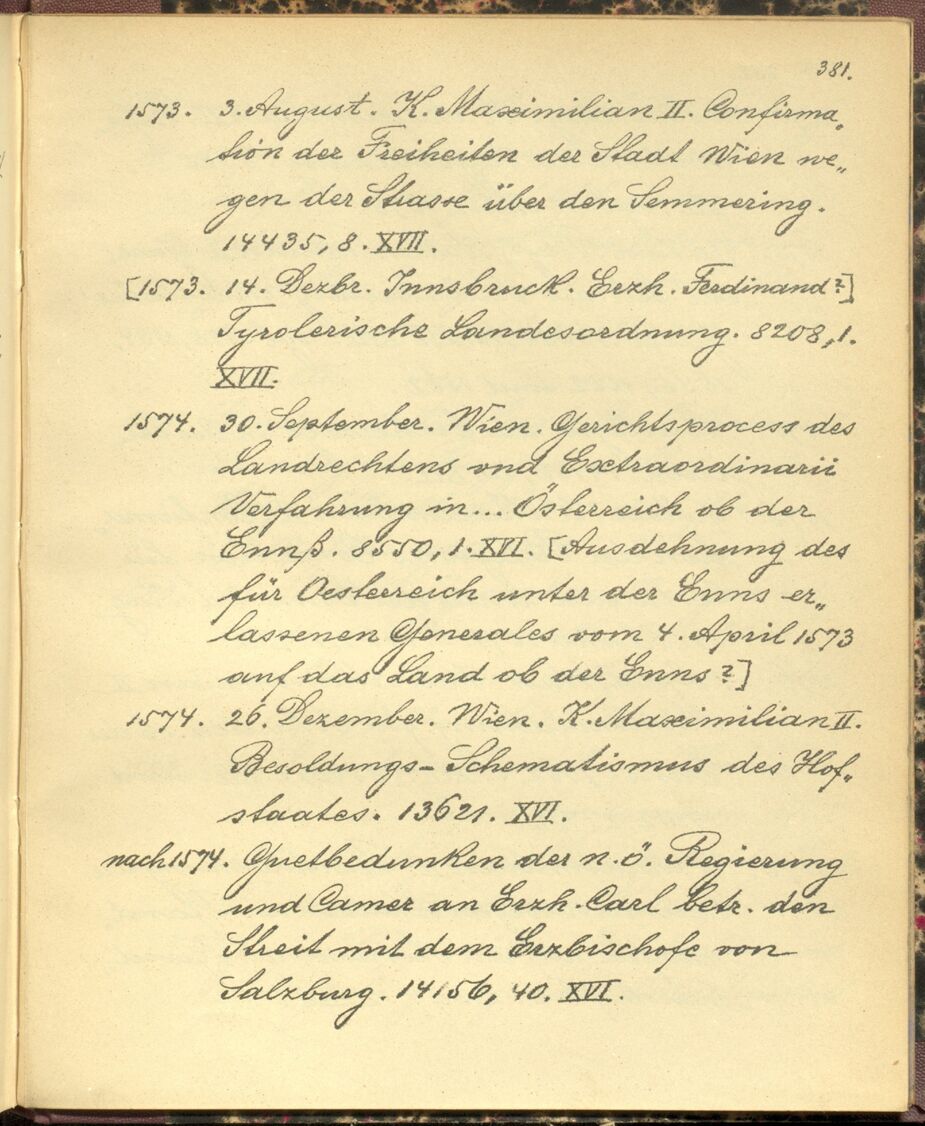 381.
1573. 3. August. K. Maximilian II. Confirma„
tion der Freiheiten der Stadt Wien we„
gen der Strasse über den Semmering.
14435, 8. XVII.
[1573. 14. Dezbr. Innsbruck. Erzh. Ferdinand?]
Tyrolerische Landesordnung. 8208, 1.
XVII.
1574. 30. September. Wien. Gerichtsprocess des
Landrechtens vnd Extraordinarii
Verfahrung in... Österreich ob der
Ennß. 8550, 1. XVI. [Ausdehnung des
für Oesterreich unter der Enns er„
lassenen Generales vom 4. April 1573
auf das Land ob der Enns?]
1574. 26. Dezember. Wien. K. Maximilian II.
Besoldungs-Schematismus des Hof„
staates. 13621. XVI.
nach 1574. Guetbedunken der n. ö. Regierung
und Camer an Erzh. Carl betr. den
Streit mit dem Erzbischofe von
Salzburg. 14156, 40. XVI.